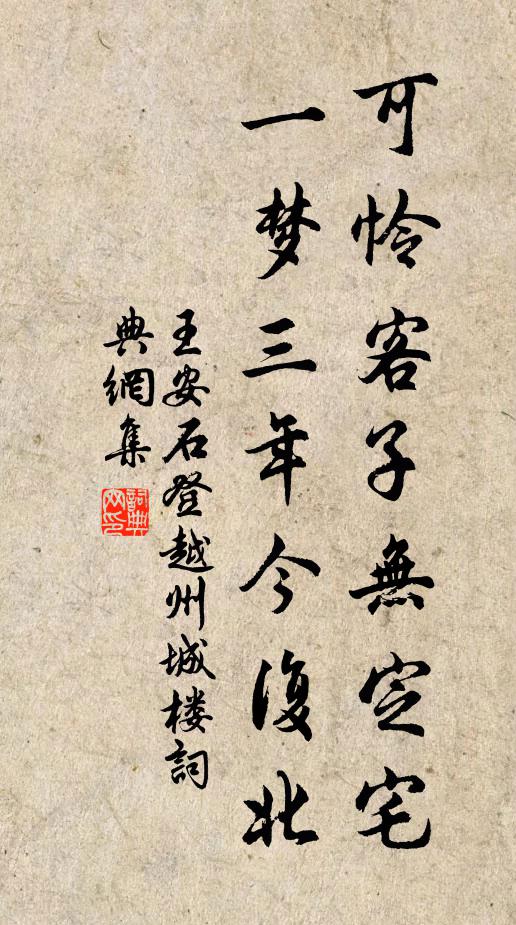 可怜客子無定宅
一梦三年今復北
王安石登越州城楼詞
典網集
詞典
网印